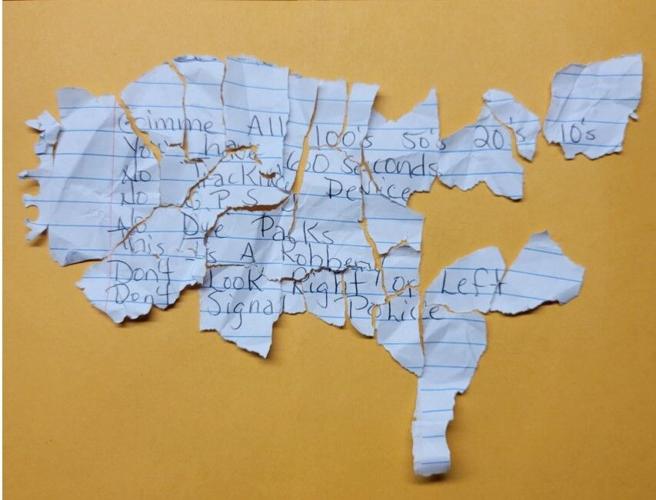 Gimme All 100's 50's 20's 10's
You have 60 Seconds
No Tracking Device
No G.P.S
No Dye Packs
This Is A Robbery
Don't Look Right or Left
Don't Signal Police